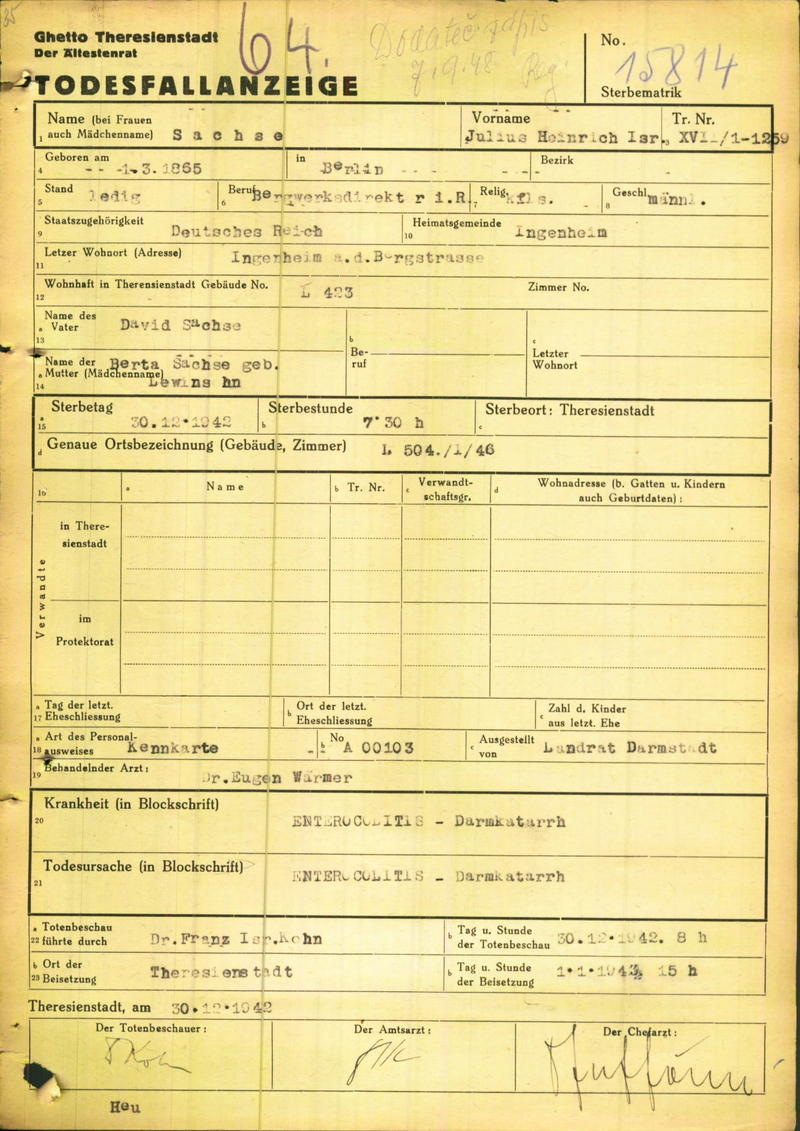 Ghetto Theresienstadt
Der Ältestenrat
64.
Dodateč. zápis
7.9.48
No.
15814
Sterbematrik
TODESFALLANZEIGE
Name (bei Frauen
1 auch Mädchenname) Sachse
Vorname
Julius Heinrich Isr.
Tr. Nr.
3
Geboren am
4 - - -1.3.1865
in
Berlin - - - - -
Bezirk
Stand
5 ledig
Beruf
6 Bergwerksdirekt r i.R.
Relig.
7
Geschl.
8 männl.
Staatszugehörigkeit
9 Deutsches Reich
Heimatsgemeinde
10 Ingenheim
Letzer Wohnort (Adresse)
11 Ingenheim a.d.Bergstrasse
Wohnhaft in Theresienstadt Gebäude No.
12 L 423
Zimmer No.
Name des
a Vater David Sachse
13
b
Be-
ruf
c
Letzter
Wohnort
Name der Berta Sachse geb.
a Mutter (Mädchenname)
14 Lewins hn
Sterbetag
a
15 30.12.1942
Sterbestunde
b 7'30 h
Sterbeort: Theresienstadt
c
d Genaue Ortsbezeichnung (Gebäude, Zimmer) L 504./1/46
16
a Name
b Tr. Nr.
c Verwandt-
schaftsgr.
d Wohnadresse (b. Gatten u. Kindern
auch Geburtdaten):
Verwandte
in There-
sienstadt
im
Protektorat
a Tag der letzt.
17 Eheschliessung
b Ort der letzt.
Eheschliessung
c Zahl d. Kinder
aus letzt. Ehe
a Art des Personal-
18 ausweises Kennkarte
b No
A 00103
c Ausgestellt
von Landrat Darmstadt
Behandelnder Arzt:
19 Dr.Eugen Warmer
Krankheit (in Blockschrift)
20 ENTEROCOLITIS - Darmkatarrh
Todesursache (in Blockschrift)
21 ENTEROCOLITIS - Darmkatarrh
a Totenbeschau
22 führte durch Dr.Franz Isr.Kohn
b Tag u. Stunde
der Totenbeschau 30.12.1942. 8 h
b Ort der
23 Beisetzung Theresienstadt
b Tag u. Stunde
der Beisetzung 1.1.1943, 15 h
Theresienstadt, am 30.12.1942
Der Totenbeschauer:
Der Amtsarzt:
Der Chefarzt:
Heu